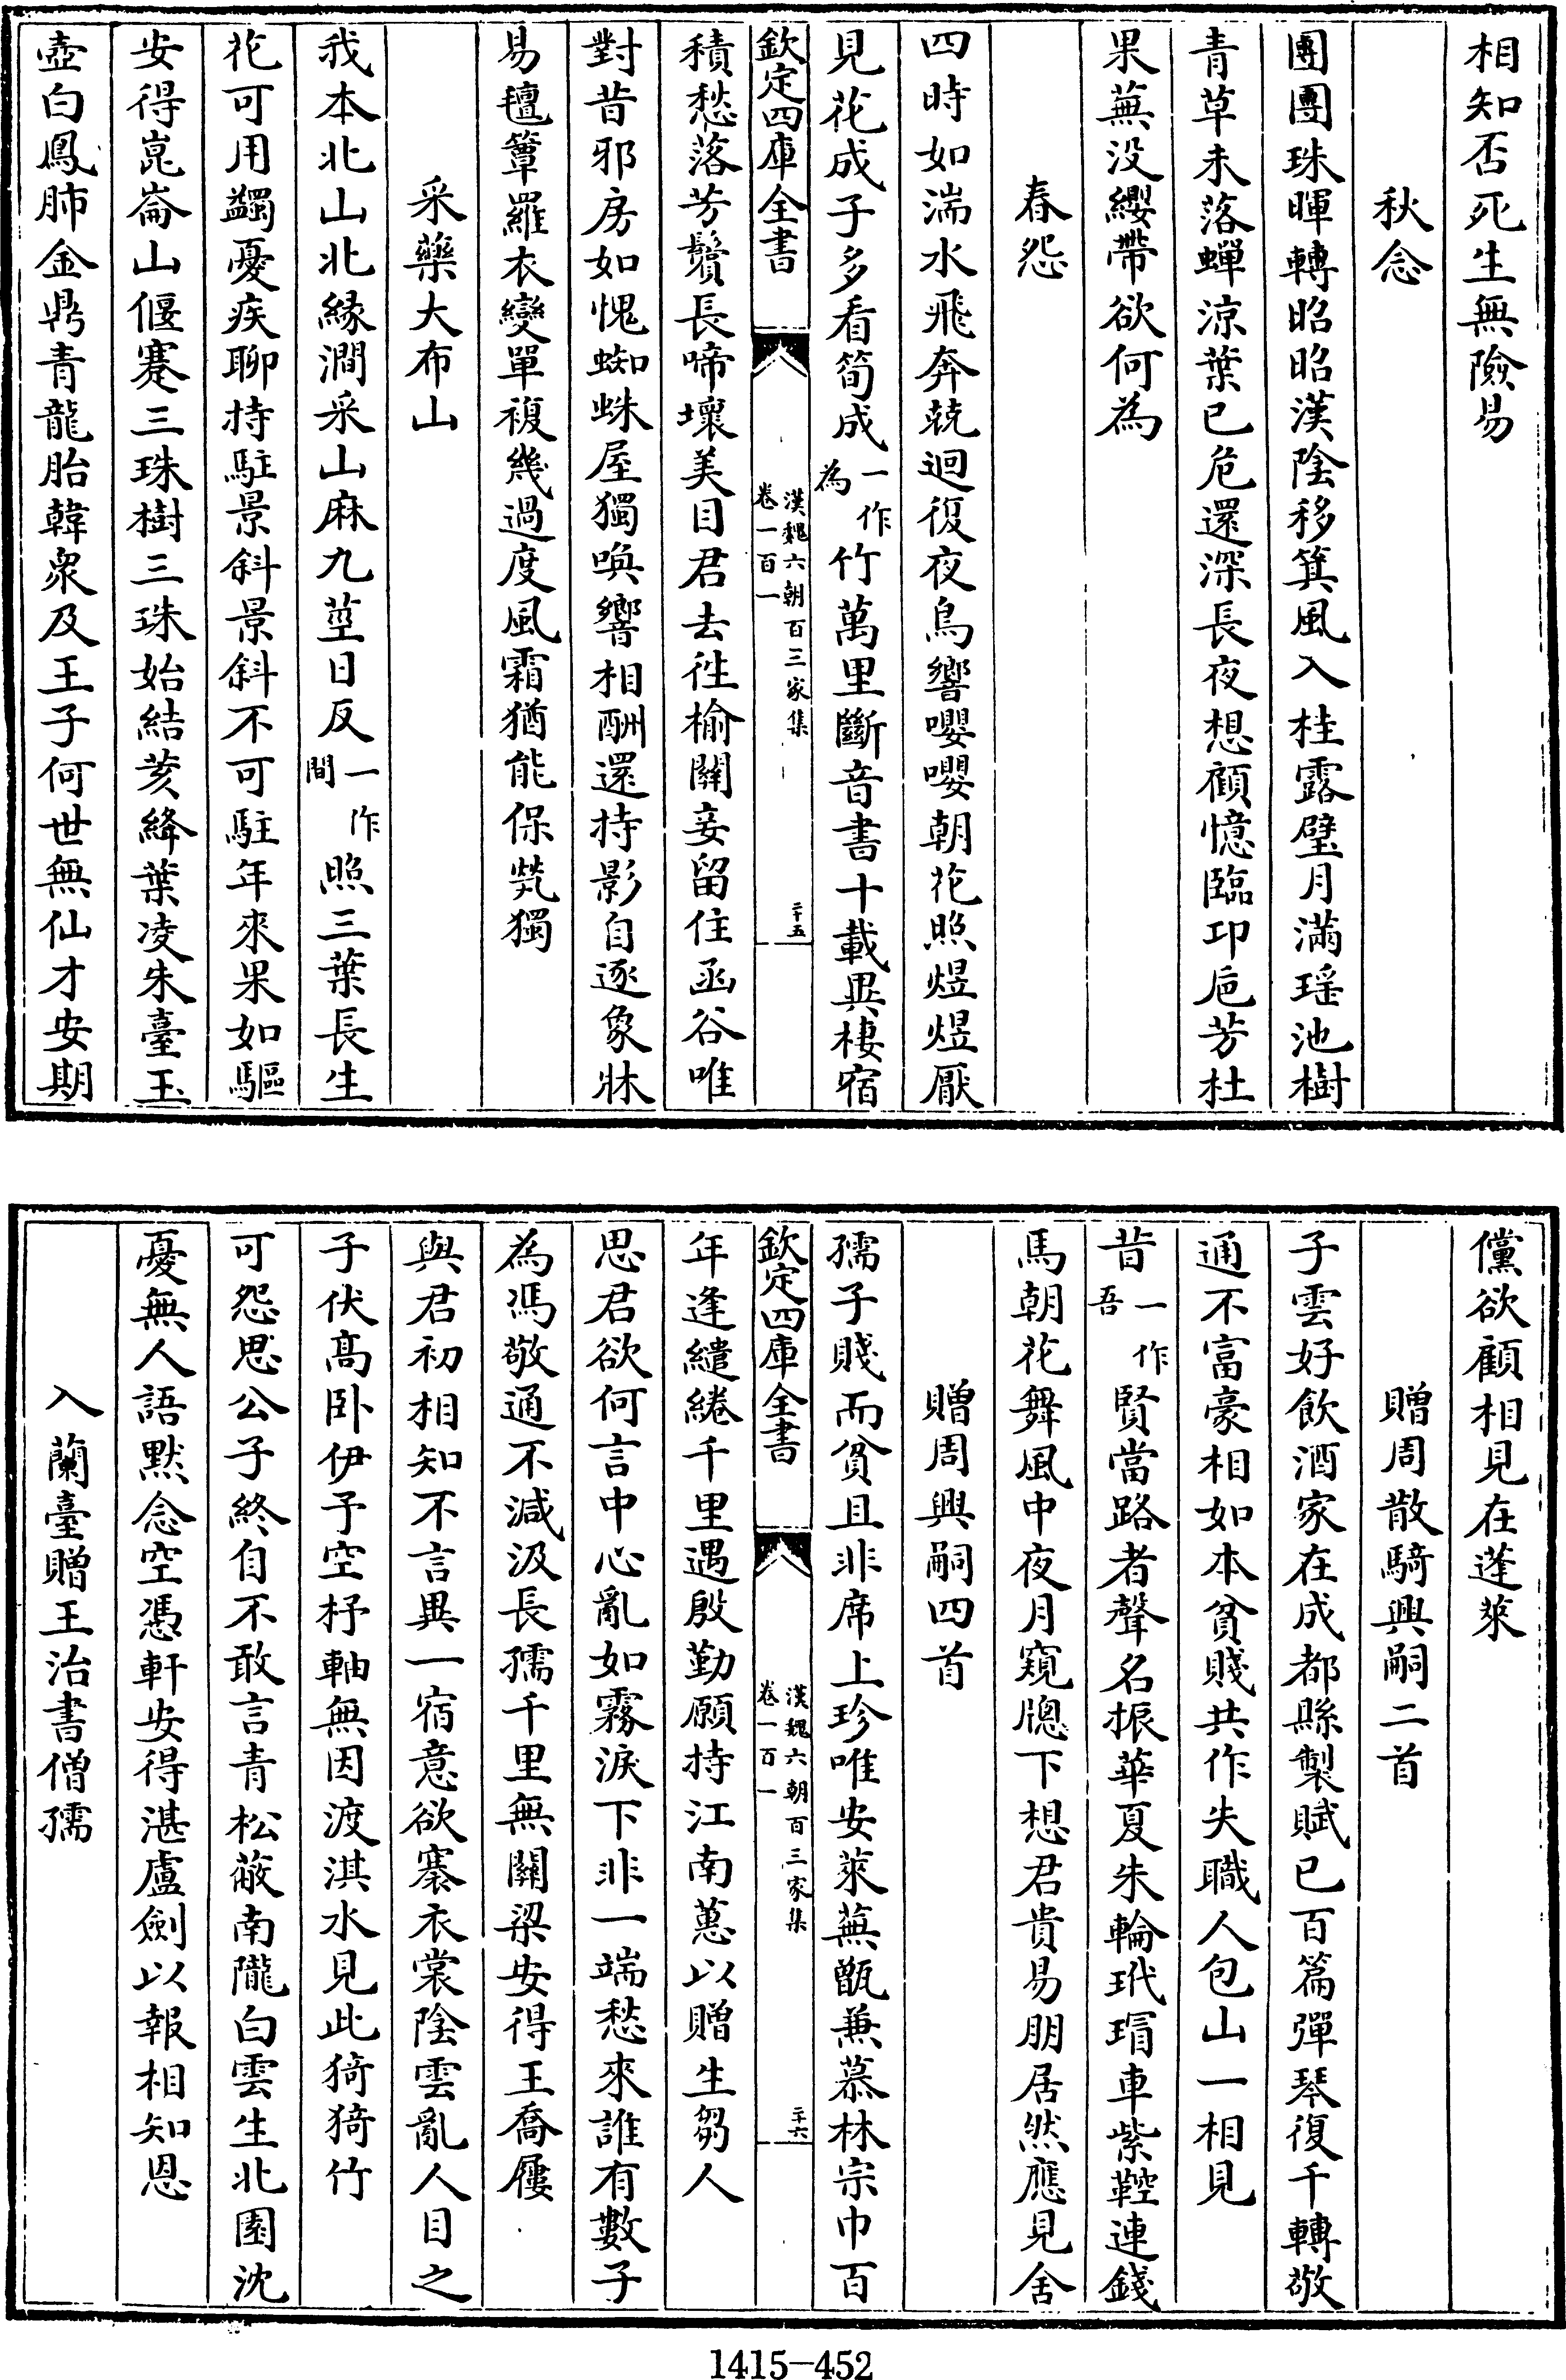 相知否死生無險易
秋念
團團珠暉轉昭昭漢陰移箕風入桂露璧月滿瑤池樹
青草未落蟬涼葉已危還深長夜想顧憶臨卭卮芳杜
果蕪没纓帶欲何為
春怨
四時如湍水飛奔兢迴復夜鳥響嚶嚶朝花照煜煜厭
見花成子多看筍成一作為竹萬里斷音書十載異棲宿
欽定四庫全書
漢魏六朝百三家集
卷一百一
二十五
積愁落芳鬢長啼壞美目君去徃榆關妾留住函谷唯
對昔邪房如愧蜘蛛屋獨喚響相酬還持影自逐象牀
易氊簟羅衣變單複幾過度風霜猶能保煢獨
采藥大布山
我本北山北緣澗采山麻九莖日反一作間照三葉長生
花可用蠲憂疾聊持駐景斜景斜不可駐年來果如驅
安得崑崙山偃蹇三珠樹三珠始結荄絳葉凌朱臺玉
壺白鳳肺金鼎青龍胎韓衆及王子何世無仙才安期
儻欲顧相見在蓬萊
贈周散騎興嗣二首
子雲好飲酒家在成都縣製賦已百篇彈琴復千轉敬
通不富豪相如本貧賤共作失職人包山一相見
昔一作吾賢當路者聲名振華夏朱輪玳瑁車紫鞚連錢
馬朝花舞風中夜月窺牕下想君貴易朋居然應見舍
贈周興嗣四首
孺子賤而貧且非席上珍唯安萊蕪甑兼慕林宗巾百
欽定四庫全書
漢魏六朝百三家集
卷一百一
二十六
年逢繾綣千里遇殷勤願持江南蕙以贈生芻人
思君欲何言中心亂如霧淚下非一端愁來誰有數子
為馮敬通不減汲長孺千里無關梁安得王喬屨
與君初相知不言異一宿意欲褰衣裳陰雲亂人目之
子伏髙卧伊予空杼軸無因渡淇水見此猗猗竹
可怨思公子終自不敢言青松蔽南隴白雲生北園沈
憂無人語默念空憑軒安得湛盧劍以報相知恩
入蘭臺贈王治書僧孺
1415-452